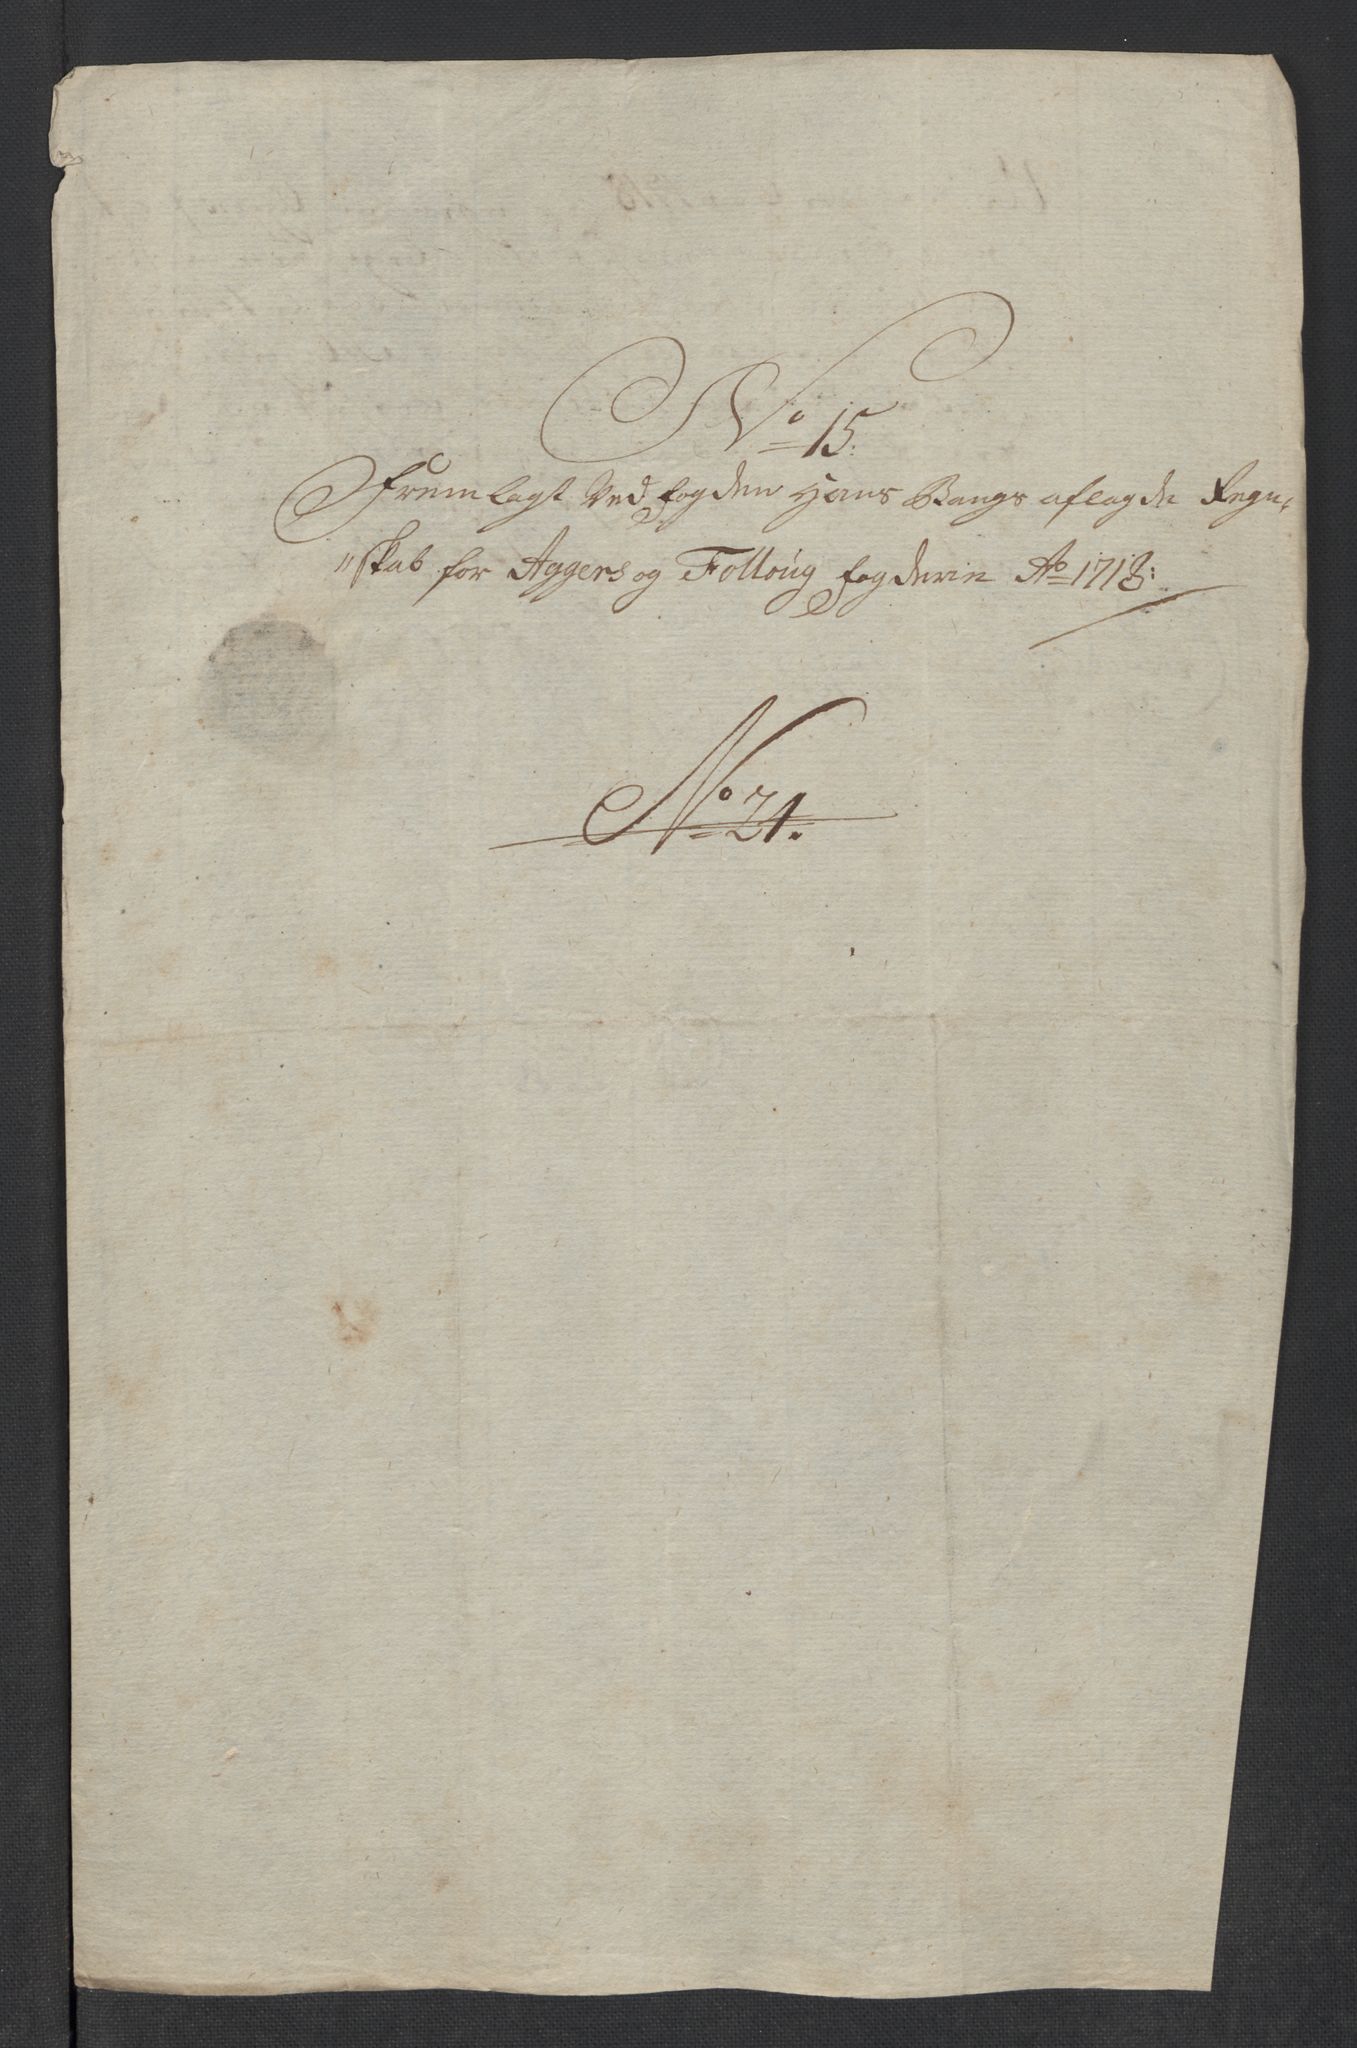 No 15.
Fremlagt Ved fogden Hans Bangs aflagde Regn,
"skab for Aggers og Folloug fogderie Ao 1718:
No 21.